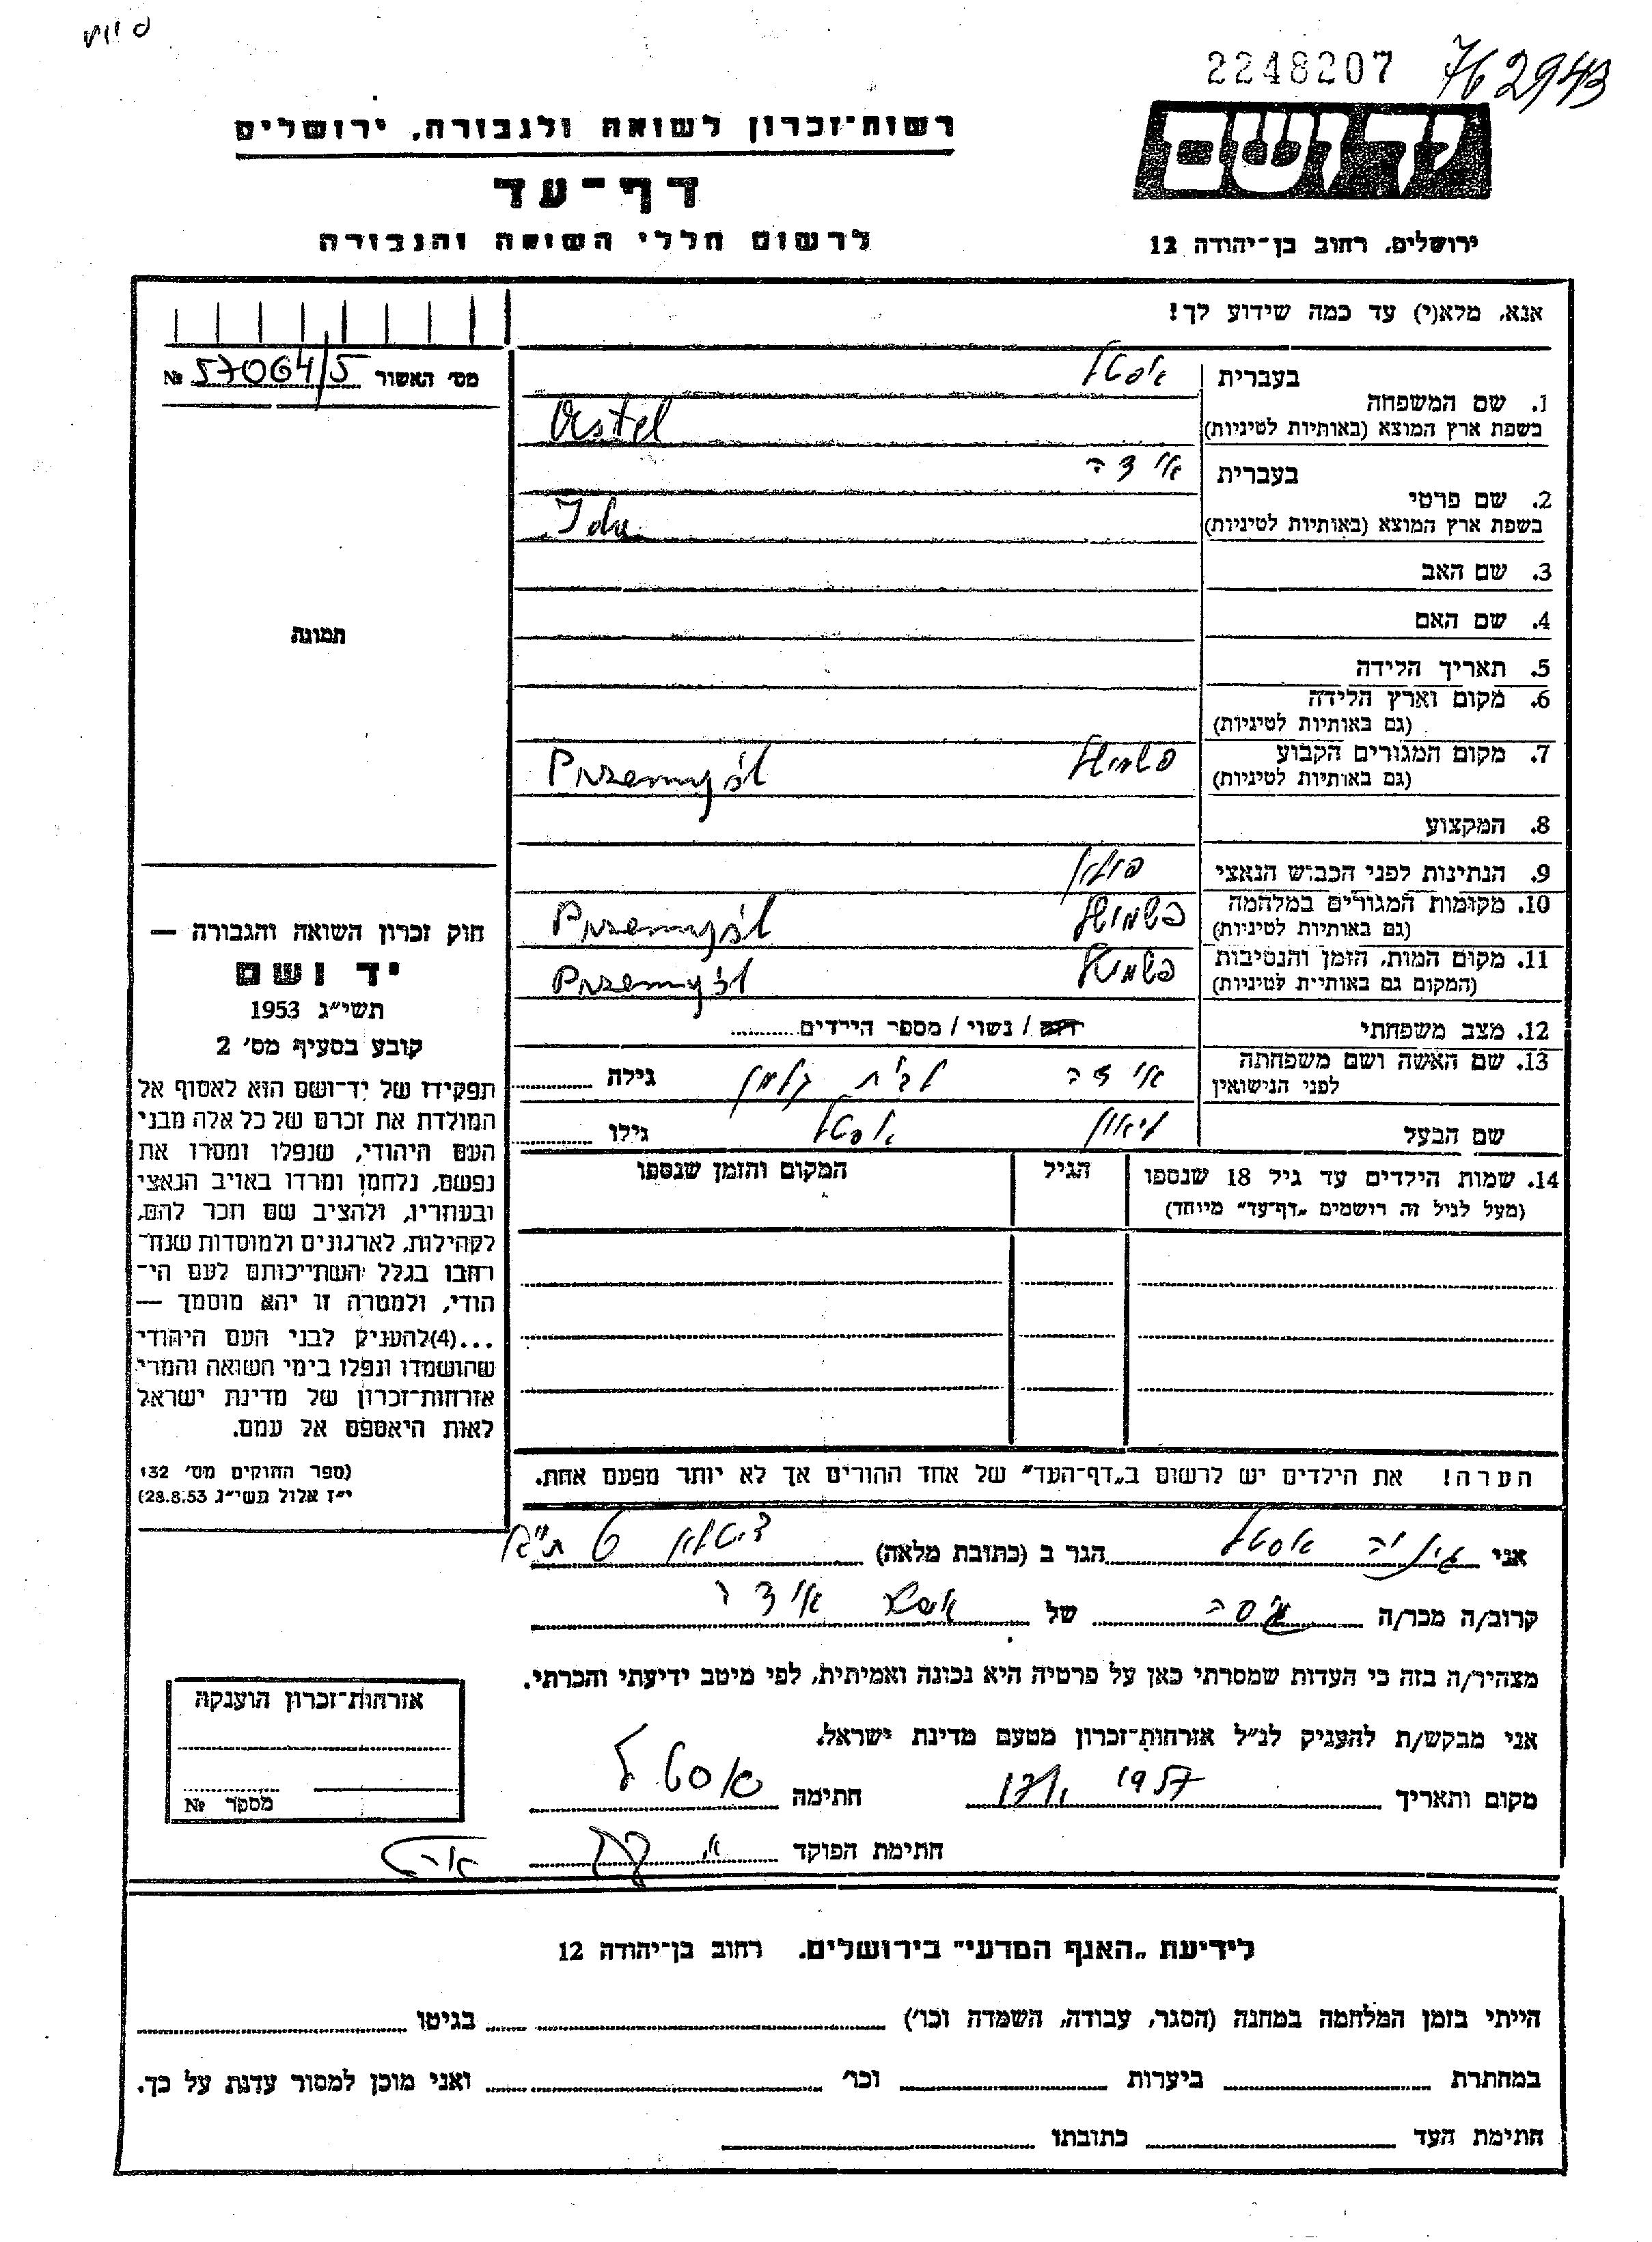 2248207 762943
רשות־זכרון לשואה ולגבורה, ירושלים
ידושם
דף־עד
לרשום חללי השואה והגבורה
ירושלים, רחוב בן־יהודה 12
אנא, מלא(י) עד כמה שידוע לך!
מס׳ האשור 57064/5 №
בעברית
1. שם המשפחה
בשפת ארץ המוצא (באותיות לטיניות)
בעברית אידה
2. שם פרטי
בשפת ארץ המוצא (באותיות לטיניות) Ida
3. שם האב
4. שם האם
תמונה
5. תאריך הלידה
6. מקום וארץ הלידה
(גם באותיות לטיניות)
7. מקום המגורים הקבוע פשמישל Przemyśl
(גם באותיות לטיניות)
8. המקצוע
9. הנתינות לפני הכבוש הנאצי פולין
10. מקומות המגורים במלחמה פשמישל Przemyśl
(גם באותיות לטיניות)
11. מקום המות, הזמן והנסיבות פשמישל Przemyśl
(המקום גם באותיות לטיניות)
12. מצב משפחתי רווק / נשוי / מספר הילדים
13. שם האשה ושם משפחתה אידה לבית גילה
לפני הנישואין
שם הבעל גילו
14. שמות הילדים עד גיל 18 שנספו הגיל המקום והזמן שנספו
(מעל לגיל זה רושמים „דף־עד״ מיוחד)
הערה! את הילדים יש לרשום ב„דף־העד״ של אחד ההורים אך לא יותר מפעם אחת.
חוק זכרון השואה והגבורה —
יד ושם
תשי״ג 1953
קובע בסעיף מס׳ 2
תפקידו של יד־ושם הוא לאסוף אל
המולדת את זכרם של כל אלה מבני
העם היהודי, שנפלו ומסרו את
נפשם, נלחמו ומרדו באויב הנאצי
ובעוזריו, ולהציב שם וזכר להם,
לקהילות, לארגונים ולמוסדות שנח־
רבו בגלל השתייכותם לעם הי־
הודי, ולמטרה זו יהא מוסמך —
...(4)להעניק לבני העם היהודי
שהושמדו ונפלו בימי השואה והמרי
אזרחות־זכרון של מדינת ישראל
לאות היאספם אל עמם.
(ספר החוקים מס׳ 132
י״ז אלול תשי״ג 28.8.53)
אני אסטל הגר ב (כתובת מלאה)
קרוב/ה מכר/ה גיסה של אידה
מצהיר/ה בזה כי העדות שמסרתי כאן על פרטיה היא נכונה ואמיתית, לפי מיטב ידיעתי והכרתי.
אני מבקש/ת להעניק לנ״ל אזרחות־זכרון מטעם מדינת ישראל.
מקום ותאריך 1957 חתימה אסטל
חתימת הפוקד
אזרחות־זכרון הוענקה
מספר №
לידיעת „האגף המדעי״ בירושלים. רחוב בן־יהודה 12
הייתי בזמן המלחמה במחנה (הסגר, עבודה, השמדה וכו׳) בגיטו
במחתרת ביערות וכו׳ ואני מוכן למסור עדות על כך.
חתימת העד כתובתו